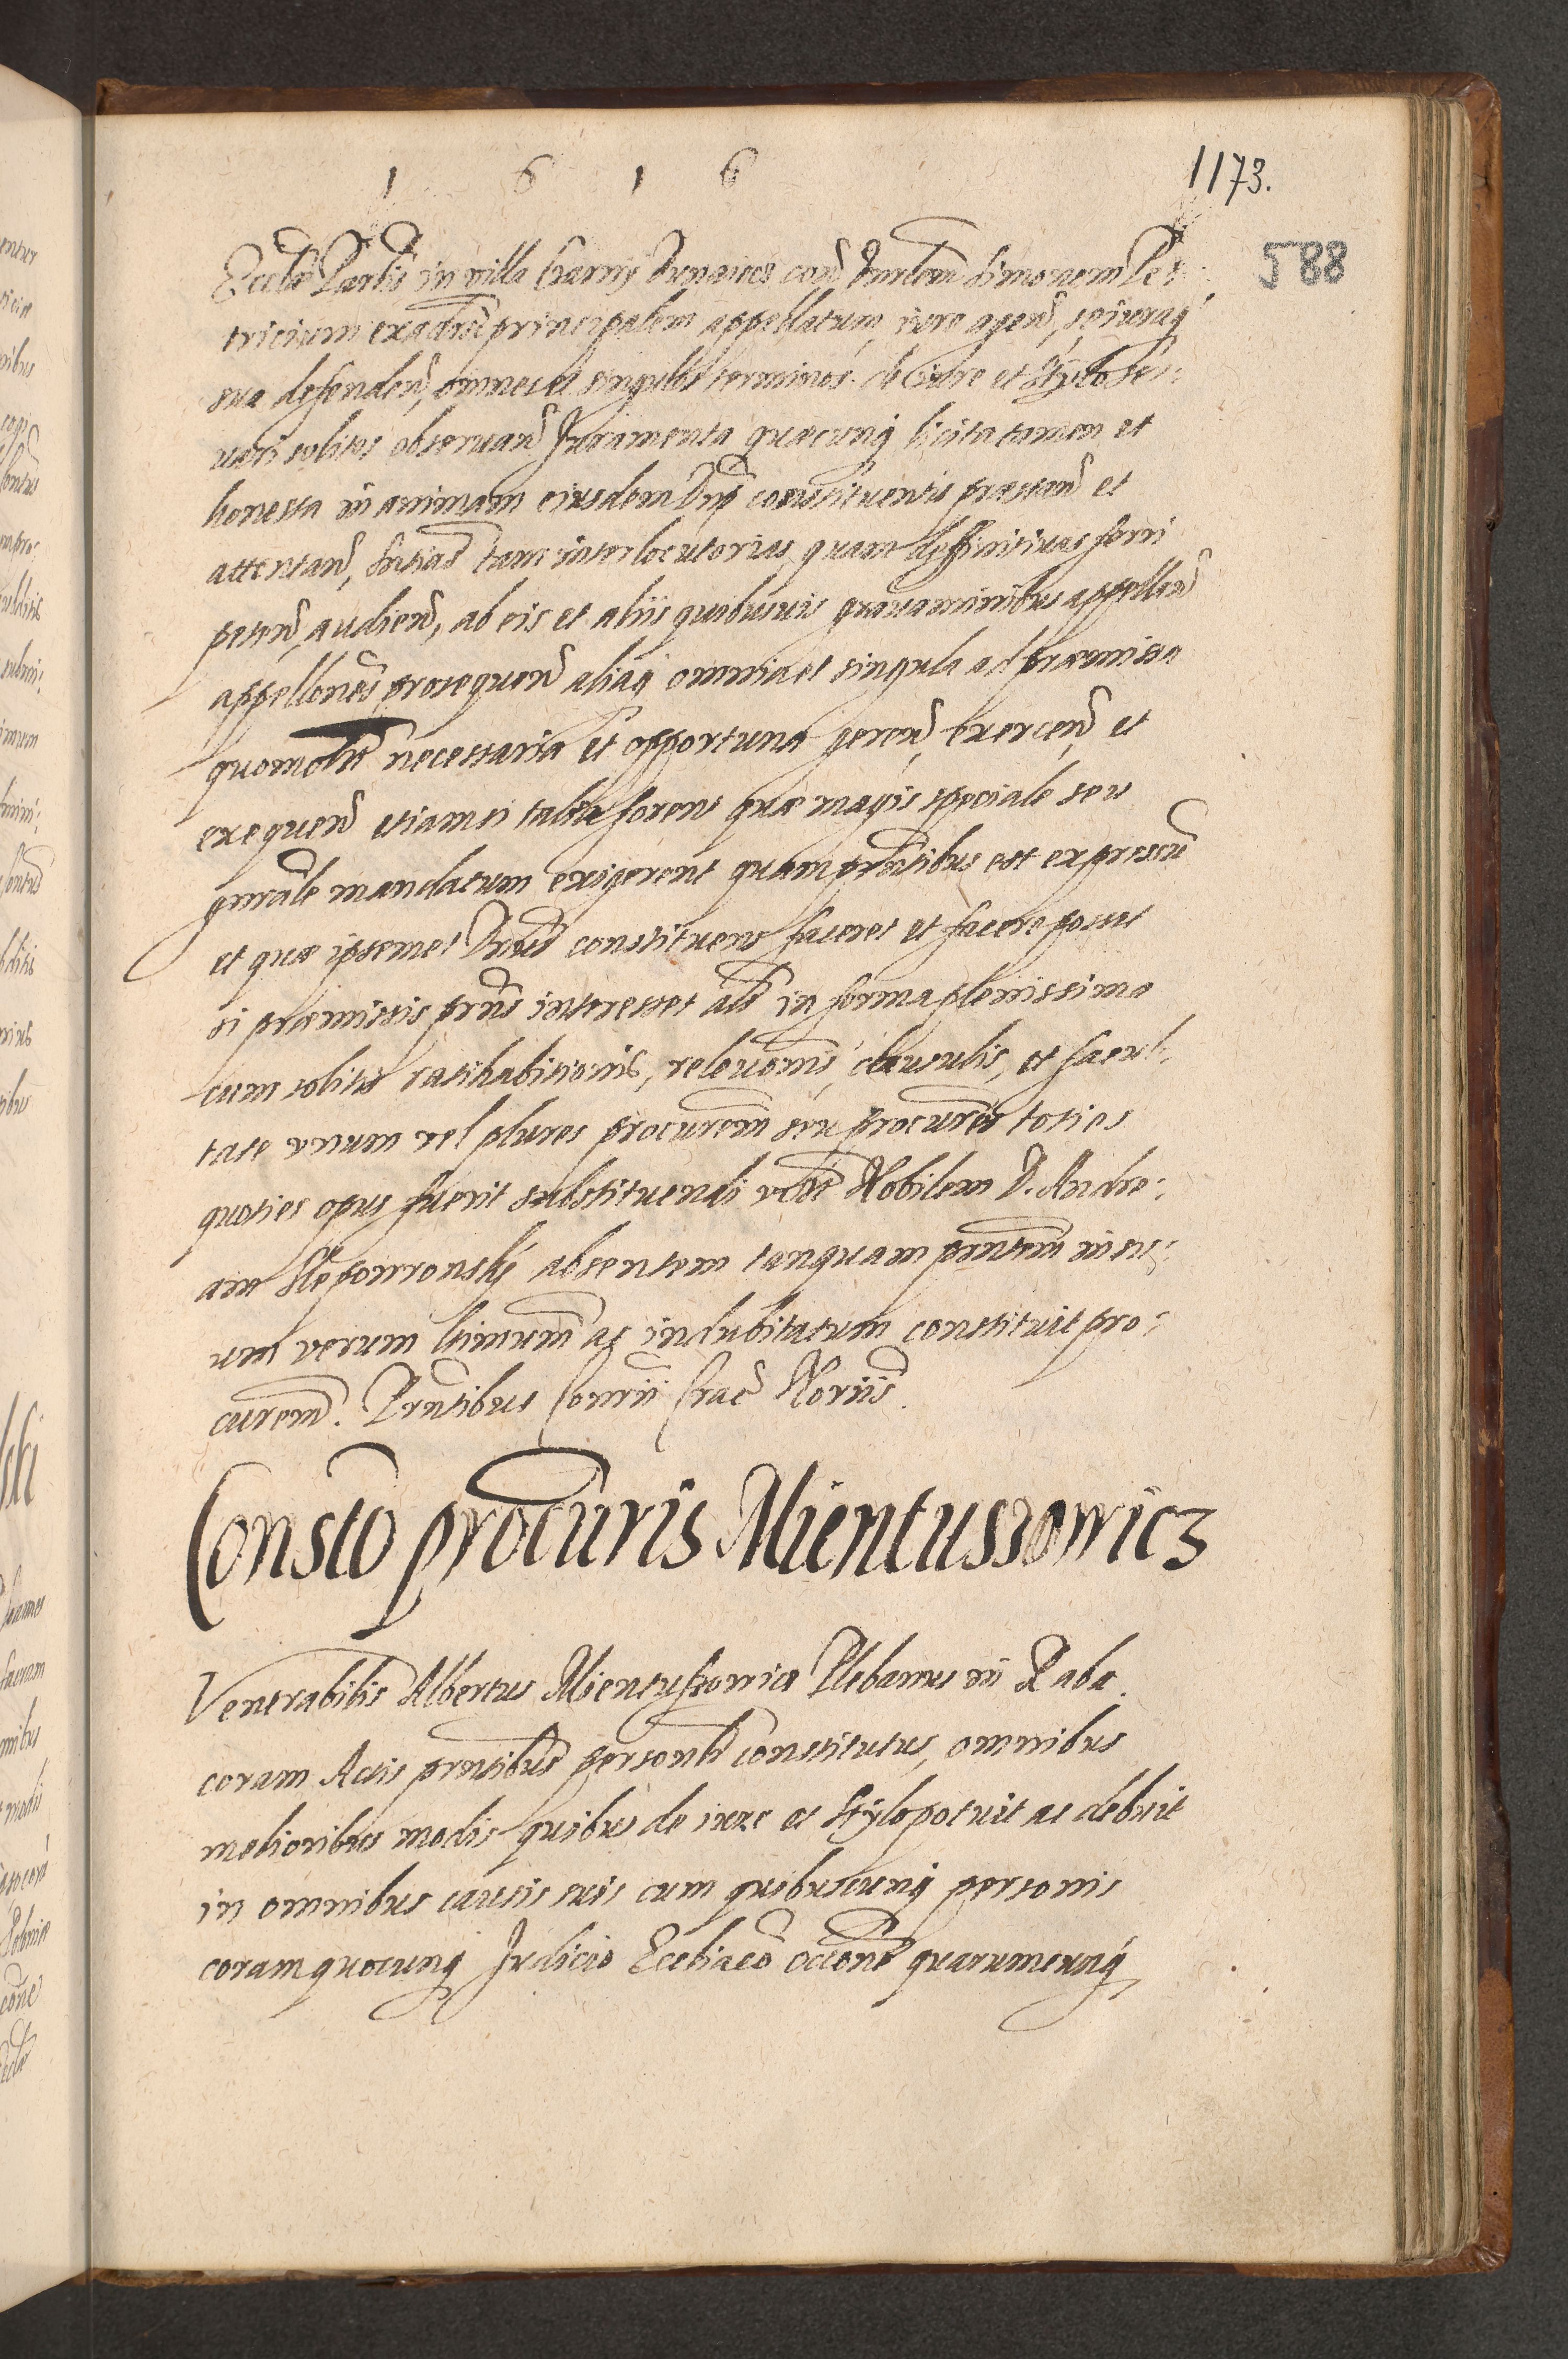 1 6 1 6
1173.
288
Ecclã Parlis in villa Czarnÿ Dunaiecz con Simonem Pe:
tricium ex adũso principalem appellatum iure agend, se iuraq
sua defendend, omnes et singulos terminos de iure et stÿlo ser:
uari solitos obseruand Juramenta quæcunq licita tamen et
honesta in animam eiusdem Dni constituentis præstand et
attentand, sntias tam interlocutorias quam deffinitiuas ferri
petend, audiend, ab eis et aliis quibusuis grauaminibus appelland
appellones prosequend aliaq omnia et singula ad præmissa
quomolt necessaria et opportuna gerend, exercend, et
exequend etiamsi talia forent quæ magis speciale seu
gnrale mandatum exigerent quam prntibus est expressũ
et quæ ipsemet Dnus constituens faceret et facere posset
si præmissis prns interesset als in forma plenissima
cum solitis ratihabitionis, releuonis, clausulis, et facul:
tate vnum vel plures procurem seu procures toties
quoties opus fuerit substituendi vdlt Nobilem D. Andre:
am absentem tanquam prntem in su:
um verum ltimum ac indubitatum constituit pro:
curem. Prntibus Consrii Crac Noriis.
Consto procuris Mientuszowicz
Venerabilis Albertus Mientuszowicz Plebanus in Raba
coram Actis prntibus personlr constitutus, omnibus
melioribus modis quibus de iure et stÿlo potuit ac debuit
in omnibus causis suis cum quibuscunq personis
coram quocunq Judicio Eccliaco occone quarumcunq